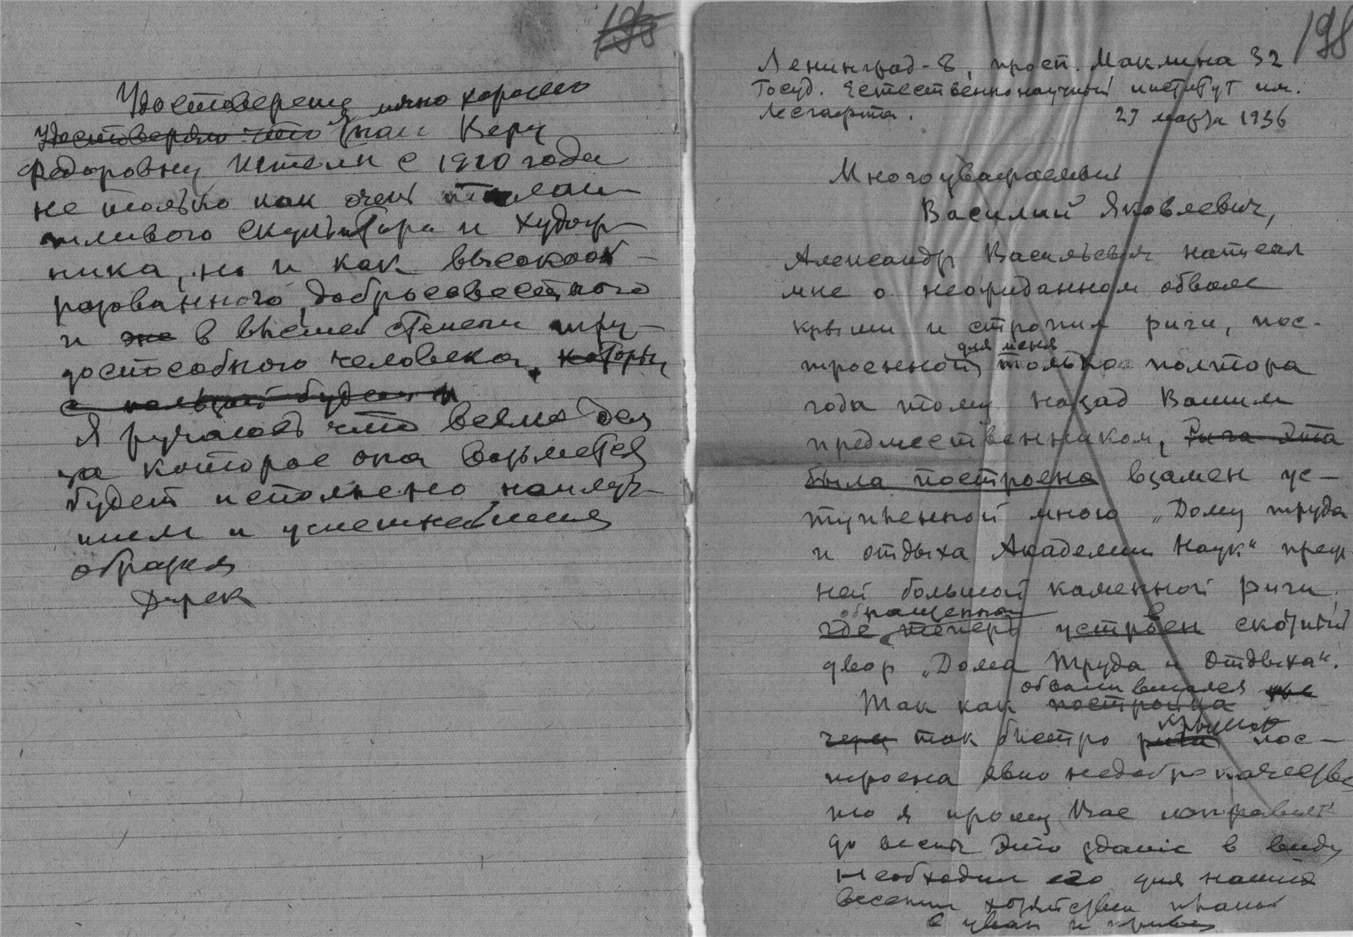 195
Удостоверение
лично хорошо
Удостоверяю что Знаю Веру
Федоровну Штейн с 1910 года
не только как очень талан-
тливого скульптора и худож-
ника, но и как высокооб-
разованного, добросовестного
и в высшей степени тру-
доспособного человека, который
с пользой будет
Я ручаюсь что всякое дело
за которое она возьмется
будет исполнено наилуч-
шим и успешнейшим
образом
Дирек
198
Ленинград-8, просп. Маклина 32
Госуд. Естественнонаучный институт им.
Лесгафта.
27 марта 1936
Многоуважаемый
Василий Яковлевич,
Александр Васильевич написал
мне о неожиданном обвале
крыши и стропил риги, пос-
для меня
троенной только полтора
года тому назад Вашим
предшественником, Рига эта
была построена взамен ус-
тупленной мною „Дому труда
и отдыха Академии Наук“ преж
ней большой каменной риги
обращенной
где теперь устроен скотный
двор „Дома Труда и Отдыха“.
обвалившаяся
Так как постройка
крыша
через так быстро рига пос-
троена явно недоброкачестве
но я прошу Вас исправить
до весны это здание в виду
необходим его для нашей
весенн
с уваж и привет